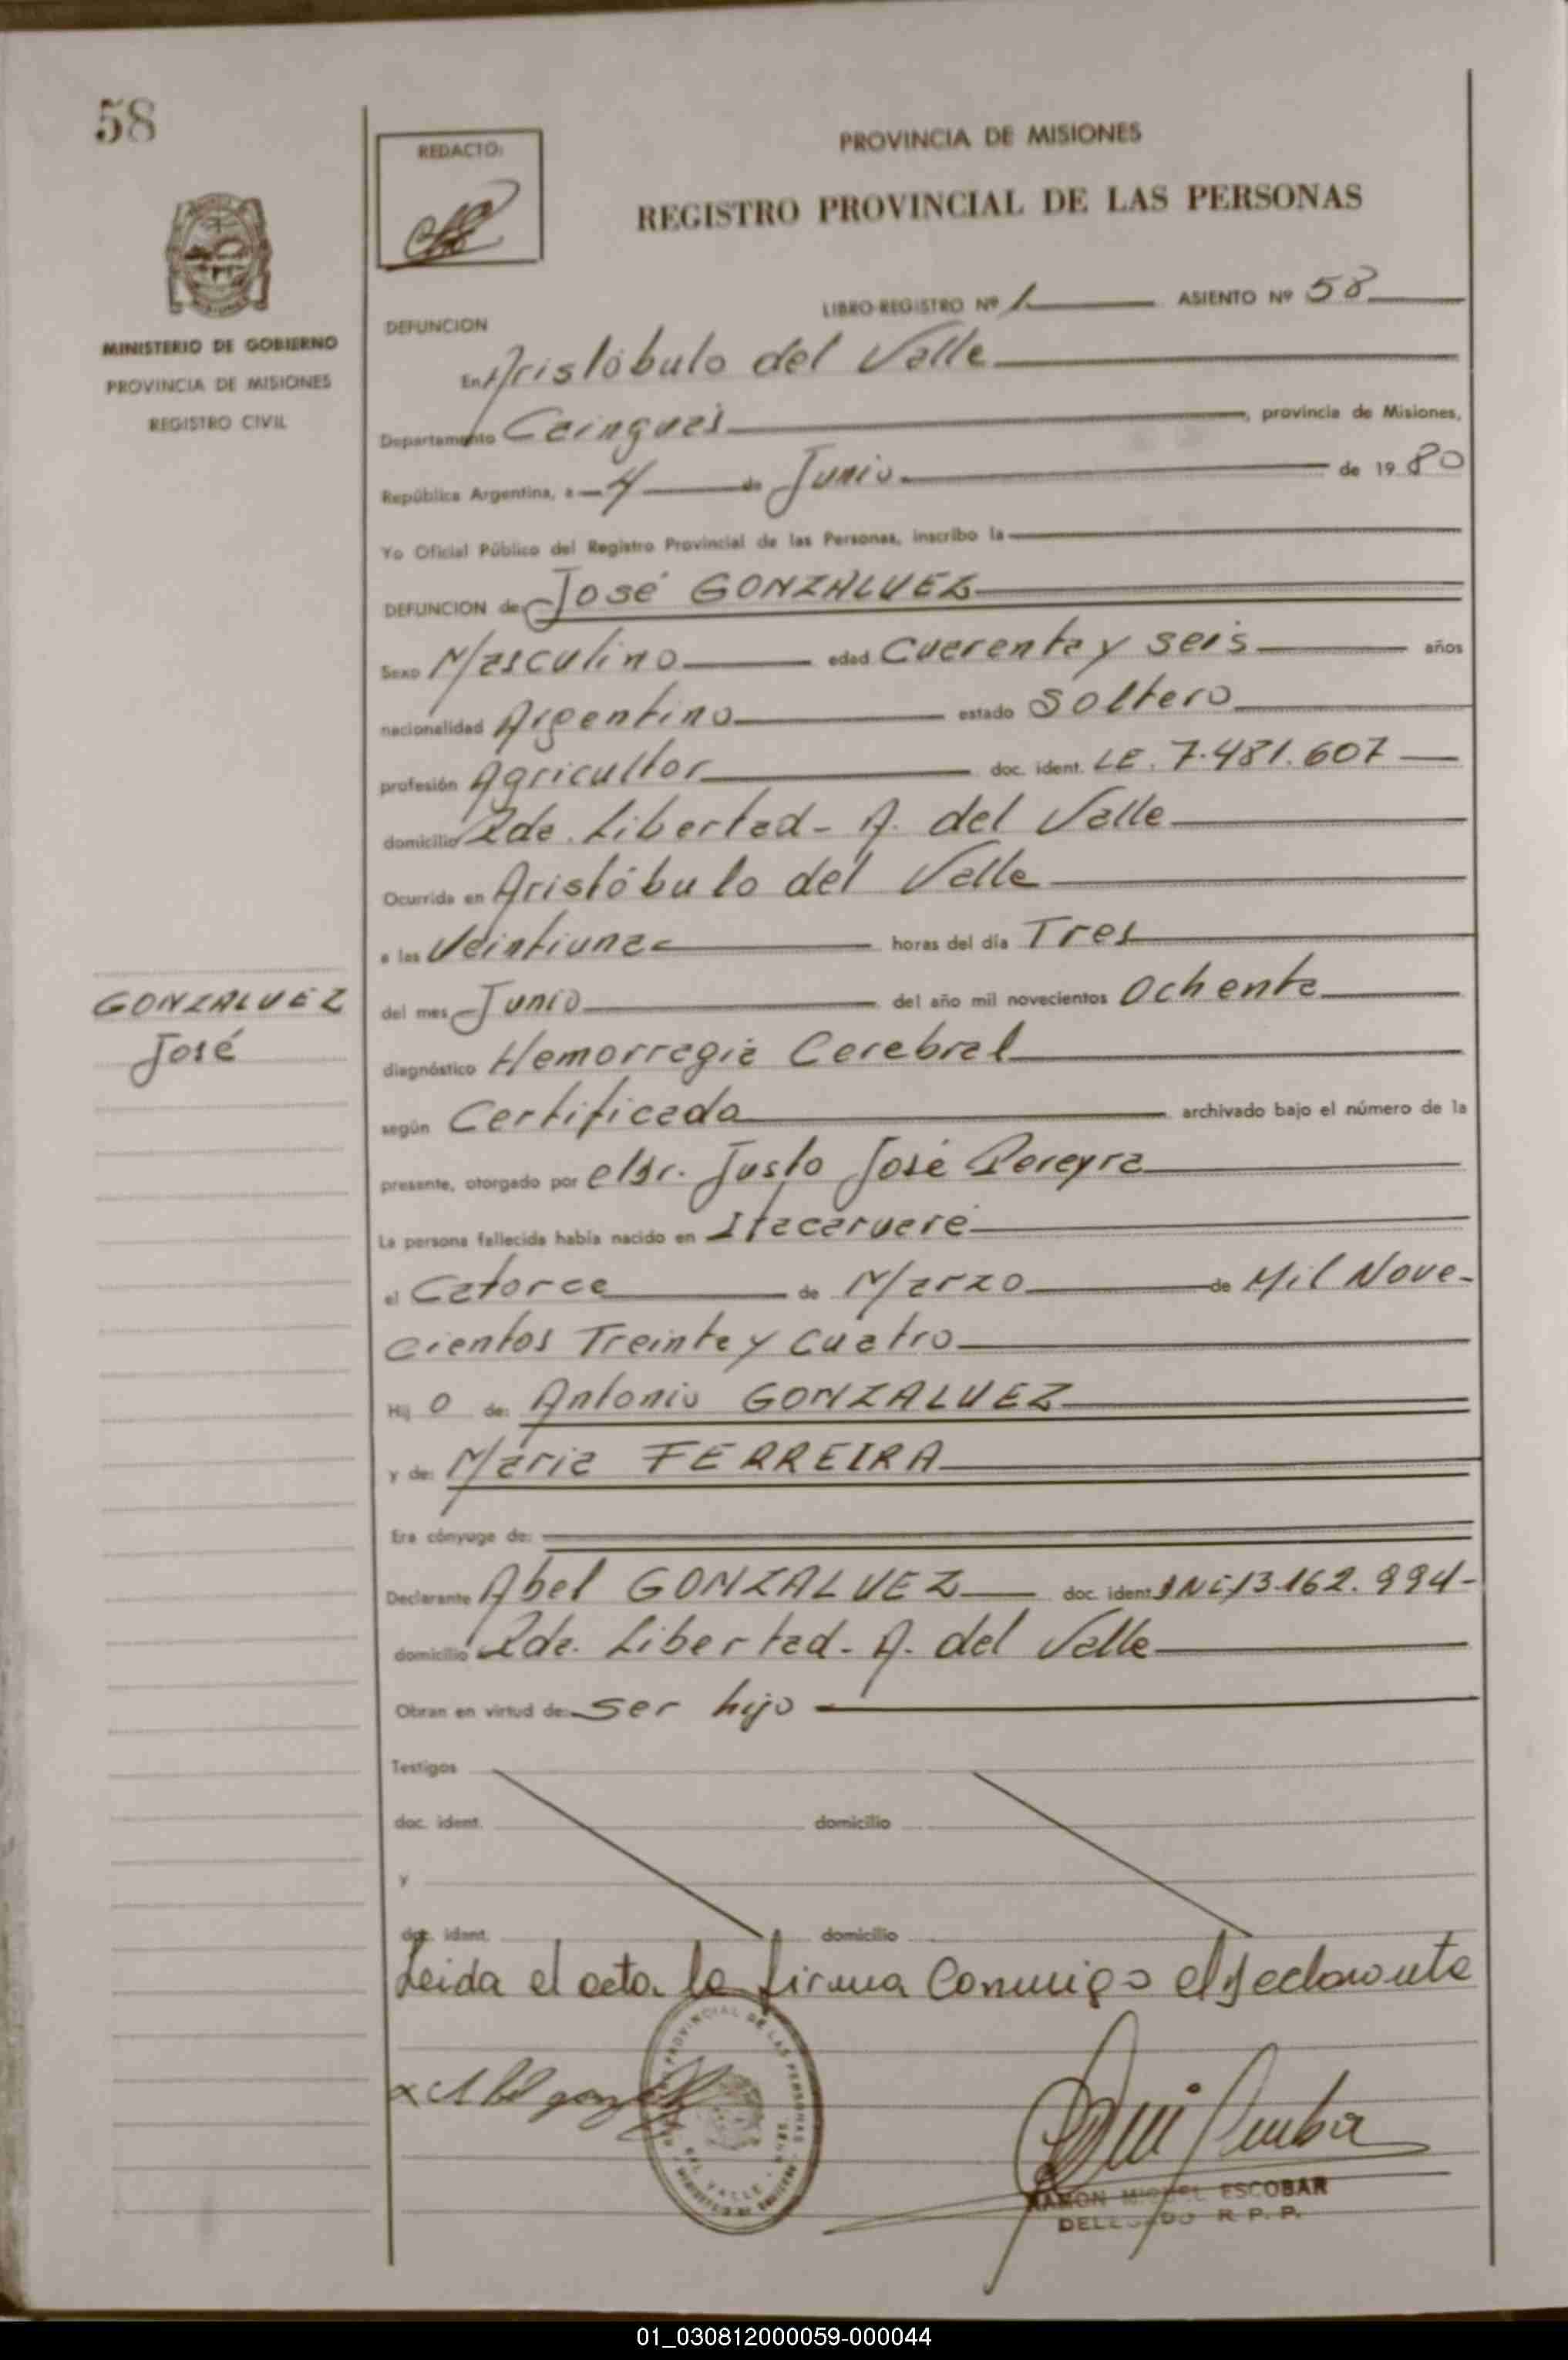 58
MINISTERIO DE GOBIERNO
PROVINCIA DE MISIONES
REGISTRO CIVIL
GONZALVEZ
José
REDACTO:
PROVINCIA DE MISIONES
REGISTRO PROVINCIAL DE LAS PERSONAS
LIBRO-REGISTRO Nº 1 ASIENTO Nº 58
DEFUNCION
En Aristóbulo del Valle
Departamento Cainguás, provincia de Misiones,
República Argentina, a 4 de Junio de 1980
Yo Oficial Público del Registro Provincial de las Personas, inscribo la
DEFUNCION de José GONZALVEZ
Sexo Masculino edad Cuarenta y seis años
nacionalidad Argentino estado Soltero
profesión Agricultor doc. ident. LE. 7.481.607
domicilio Pda. Libertad - A. del Valle
Ocurrida en Aristóbulo del Valle
a las Veintiuna horas del día Tres
del mes Junio del año mil novecientos Ochenta
diagnóstico Hemorragia Cerebral
según Certificado archivado bajo el número de la
presente, otorgado por el Dr. Justo José Pereyra
La persona fallecida había nacido en Itacaruaré
el Catorce de Marzo de Mil Nove-
cientos Treinta y Cuatro
Hijo de: Antonio GONZALVEZ
y de: María FERREIRA
Era cónyuge de:
Declarante Abel GONZALVEZ doc. ident. DNI 13.162.994-
domicilio Pda. Libertad - A. del Valle
Obran en virtud de: Ser hijo
Testigos
doc. ident. domicilio
y
doc. ident. domicilio
Leida el acta la firma Conmigo el declarante
x Abel
PROVINCIAL DE LAS PERSONAS
DEL VALLE
RAMON MIGUEL ESCOBAR
DELEGADO R. P. P.
01_030812000059-000044